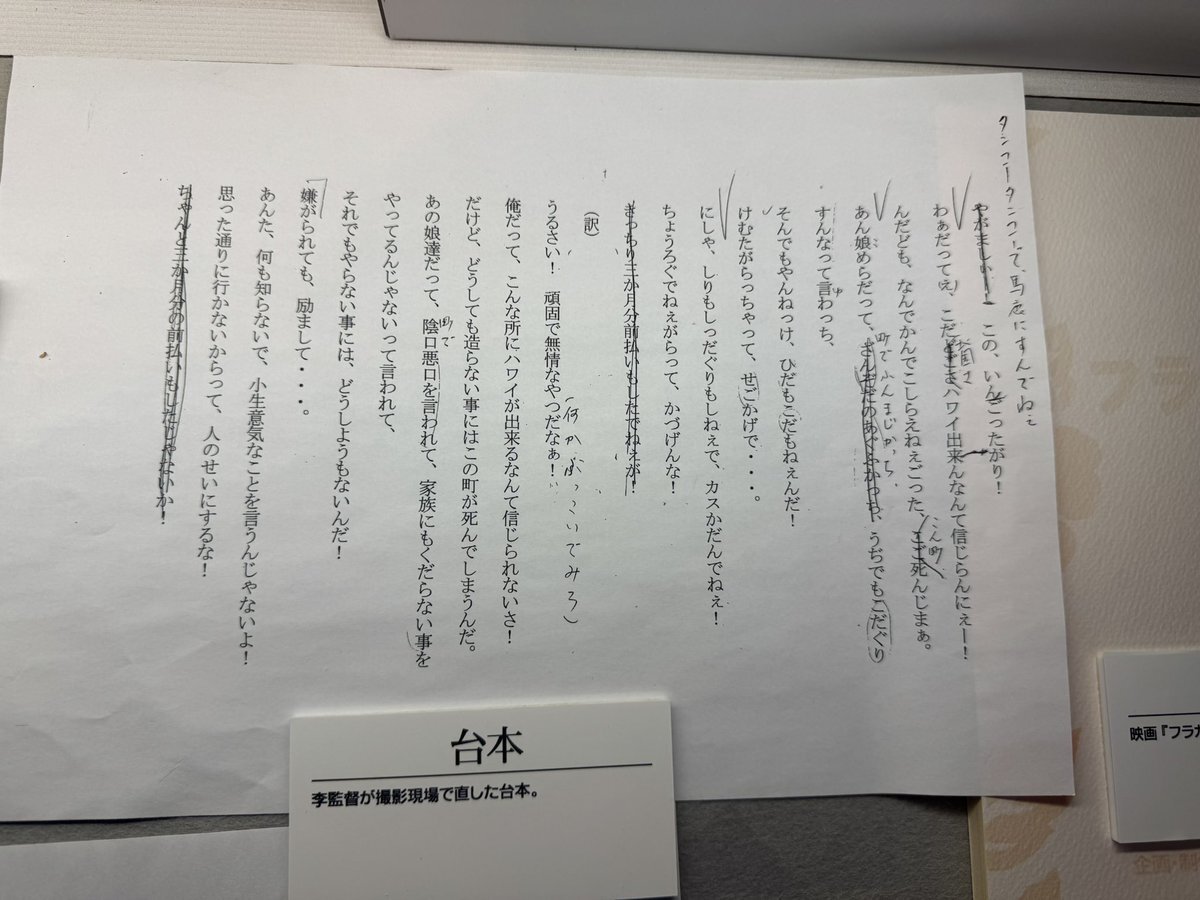 タンコータンコーって、馬鹿にすんでねえ
やがましい！　この、いんごったがり！
わぁだってぇ、こだとごさハワイ出来んなんて信じらんにぇー！
んだども、なんでかんでこしらえねぇごった、ここ死んじまぁ。
こん町
あん娘めらだって、さんざだのあぐぶかっち、うぢでもごだぐり
町でふんまじかっち
すんなって言わっち、
そんでもやんねっけ、ひだもこだもねぇんだ！
けむたがらっちゃって、せごかげで・・・。
にしゃ、しりもしっだぐりもしねぇで、カスかだんでねぇ！
ちょうろぐでねぇがらって、かづげんな！
きっちり三か月分前払いもしたでねぇが！
（訳）
うるさい！　頑固で無情なやつだなぁ！
俺だって、こんな所にハワイが出来るなんて信じられないさ！
だけど、どうしても造らない事にはこの町が死んでしまうんだ。
あの娘達だって、陰口悪口を言われて、家族にもくだらない事を
町で
やってるんじゃないって言われて、
それでもやらない事には、どうしようもないんだ！
嫌がられても、励まして・・・。
あんた、何も知らないで、小生意気なことを言うんじゃないよ！
思った通りに行かないからって、人のせいにするな！
ちゃんと三か月分の前払いもしたじゃないか！
台本
李監督が撮影現場で直した台本。
映画『フラガ
企画・制